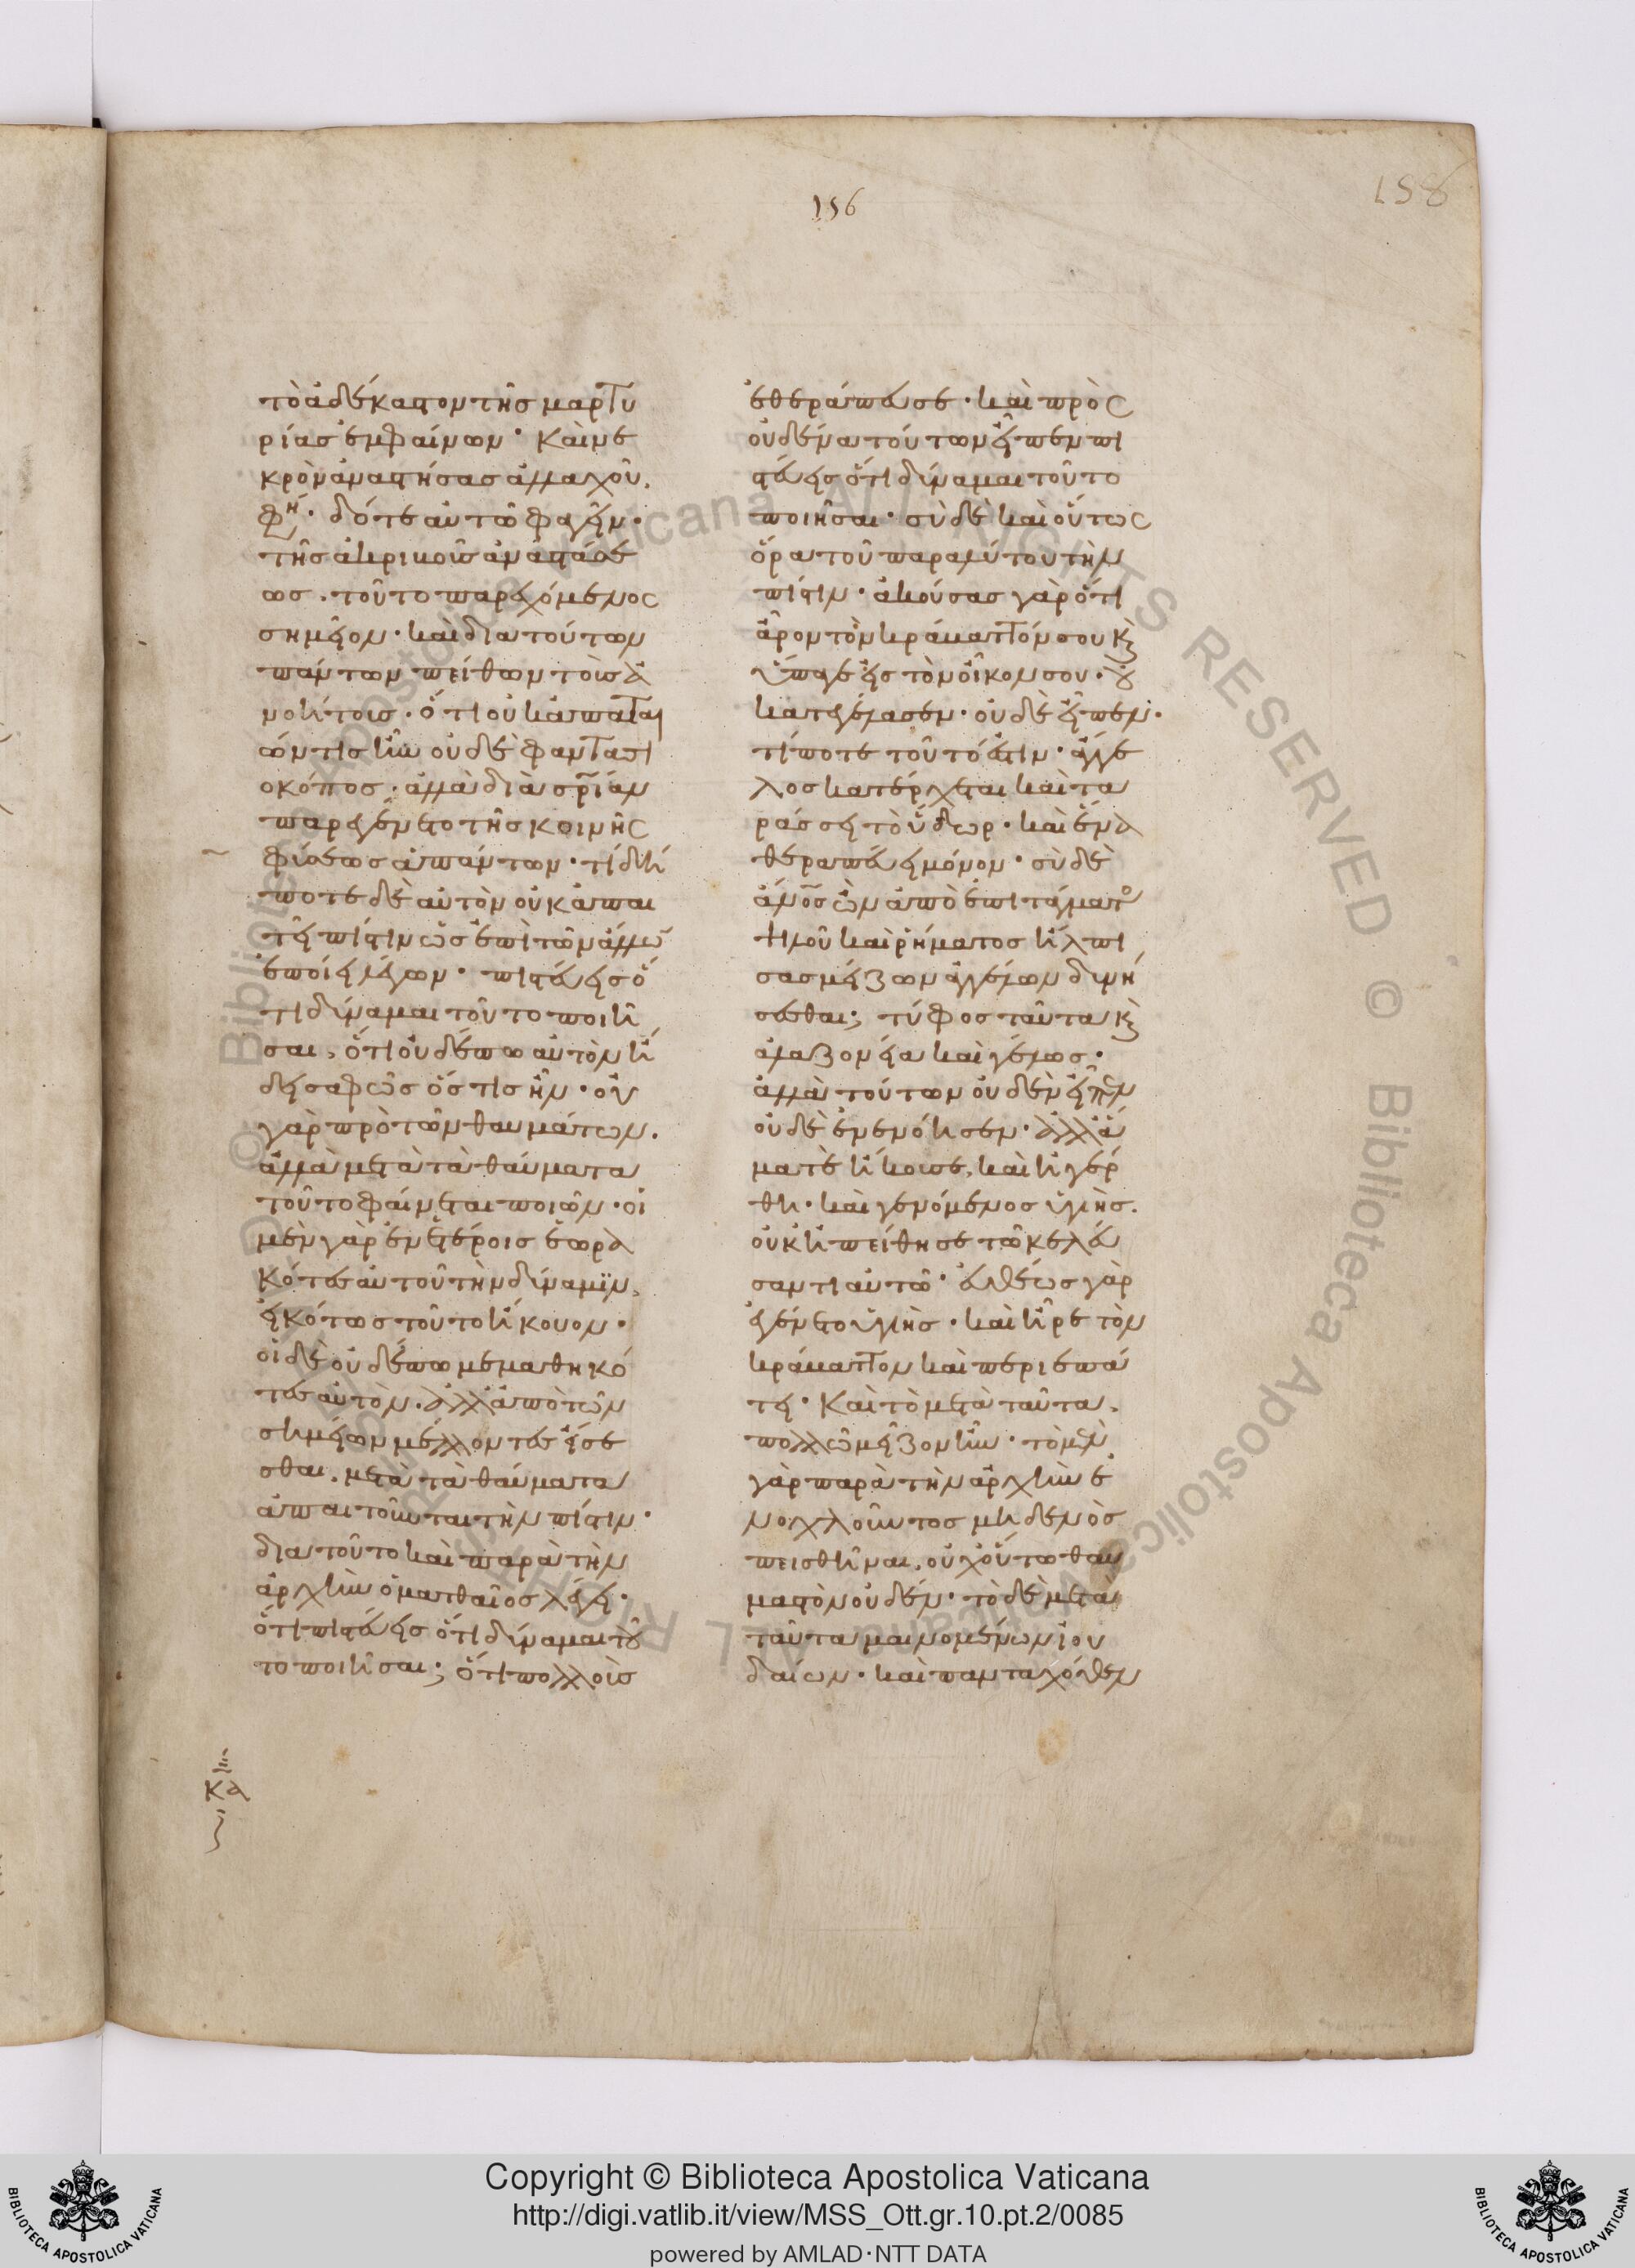 156
158
τὸ ἀδέκαστον τῆς μαρτυ
ρίας ἐμφαίνων· Καὶ νε
κρὸν ἀναστήσας ἀλλαχοῦ.
φη· δότε αὐτῶ φαγεῖν·
τῆς ἀκριβοῦς ἀναστάσε
ως. τοῦτο παρεχόμενος
σημεῖον· καὶ δια τούτων
πάντων πείθων τοὺς ἀ
νοήτοις. ὅτι οὐκ ἀπαται
ών τις ἦν οὐδὲ φαντασι
οκόπος· ἀλλὰ διὰ σρίαν
παρεγένετο τῆς κοινῆς
φύσεως ἁπάντων· τί δή
ποτε δὲ αὐτὸν οὐκ ἀπαι
τεῖ πίστιν ὡς ἐπὶ τῶν ἄλλων
ἐποίει λέγων· πιστεύεις ὅ
τι δύναμαι τοῦτο ποιῆ
σαι, ὅτι οὐδέπω αὐτὸν ἤ
δει σαφῶς ὅστις ἦν· οὐ
γὰρ πρὸ τῶν θαυμάτων.
ἀλλὰ μετὰ τὰ θαύματα
τοῦτο φαίνεται ποιῶν· οἱ
μὲν γὰρ ἐν ἑτέροις ἑωρα
κότες αὐτοῦ τὴν δύναμιν,
εἰκότως τοῦτο ἤκουον·
οἱ δὲ οὐδέπω μεμαθηκό
τες αὐτὸν. ἀλλ' ἀπὸ τῶν
σημείων μέλλοντες εἴσε
σθαι. μετὰ τὰ θαύματα
ἀπαιτοῦνται τὴν πίστιν·
δια τοῦτο καὶ παρὰ τὴν
ἀρχὴν ὁ ματθαῖος λέγει·
ὅτι πιστεύεις ὅτι δύναμαι τοῦ
το ποιῆσαι; ὅτι πολλοὺς
ἐθεράπευσε· καὶ πρὸς
οὐδένα τούτων εἶπεν πι
στεύεις ὅτι δύναμαι τοῦτο
ποιῆσαι· σὺ δὲ καὶ οὕτως
ὅρα τοῦ παραλύτου τὴν
πίστιν· ἀκούσας γὰρ ὅτι
ἆρον τὸν κράβαττόν σου κ
ὕπαγε εἰς τὸν οἶκον σου· οὐ
κατεγέλασεν· οὐδὲ εἶπεν·
τί ποτε τοῦτό ἐστιν· ἄγγε
λος κατέρχεται καὶ τα
ράσσει τὸ ὕδωρ· καὶ ἕνα
θεραπεύει μόνον· σὺ δὲ
ἄνος ὢν ἀπὸ ἐπιτάγματο
ψιλοῦ καὶ ῥήματος ἤλπι
σας μείζων ἀγγέλων δυνή
σεσθαι; τύφος ταῦτα κ
ἀλαζονεία καὶ γέλως·
ἀλλὰ τούτων οὐδὲν εἶπεν
οὐδὲ ἐνενόησεν· ἀλλ' ἅ
μα τὲ ἤκουσε, καὶ ἠγέρ
θη· καὶ γενόμενος ὑγιὴς.
οὐκ ἠπείθησε τῶ κελεύ
σαντι αὐτῶ· εὐθέως γὰρ
ἐγένετο ὑγιὴς· καὶ ἦρε τὸν
κράβαττον καὶ περιεπά
τει· Καὶ τὸ μετὰ ταῦτα,
πολλῶ μεῖζον ἦν· τὸ μὲν
γὰρ παρὰ τὴν ἀρχὴν ἐ
νοχλοῦντος μηδενὸς
πεισθῆναι, οὐχ οὕτω θαυ
μαστὸν οὐδέν· τὸ δὲ μετὰ
ταῦτα μαινομένων ἰου
δαίων· καὶ πανταχόθεν
Copyright © Biblioteca Apostolica Vaticana
http://digi.vatlib.it/view/MSS_Ott.gr.10.pt.2/0085
powered by AMLAD·NTT DATA
BIBLIOTECA APOSTOLICA VATICANA
BIBLIOTECA APOSTOLICA VATICANA